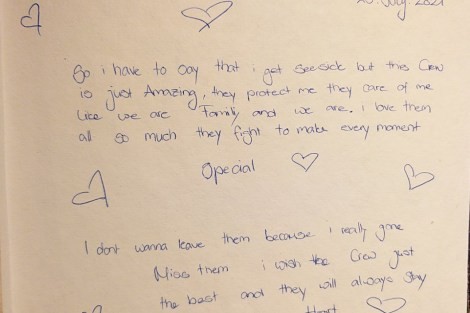 July. 2021
So i have to say that i get seesick but this Crew
is just Amazing, they protect me they care of me
Like we are Family and we are. i love them
all so much they fight to make every moment
Special
I dont wanna leave them because i really gone
Miss them i wish the Crew just
the best and they will always stay
Heart